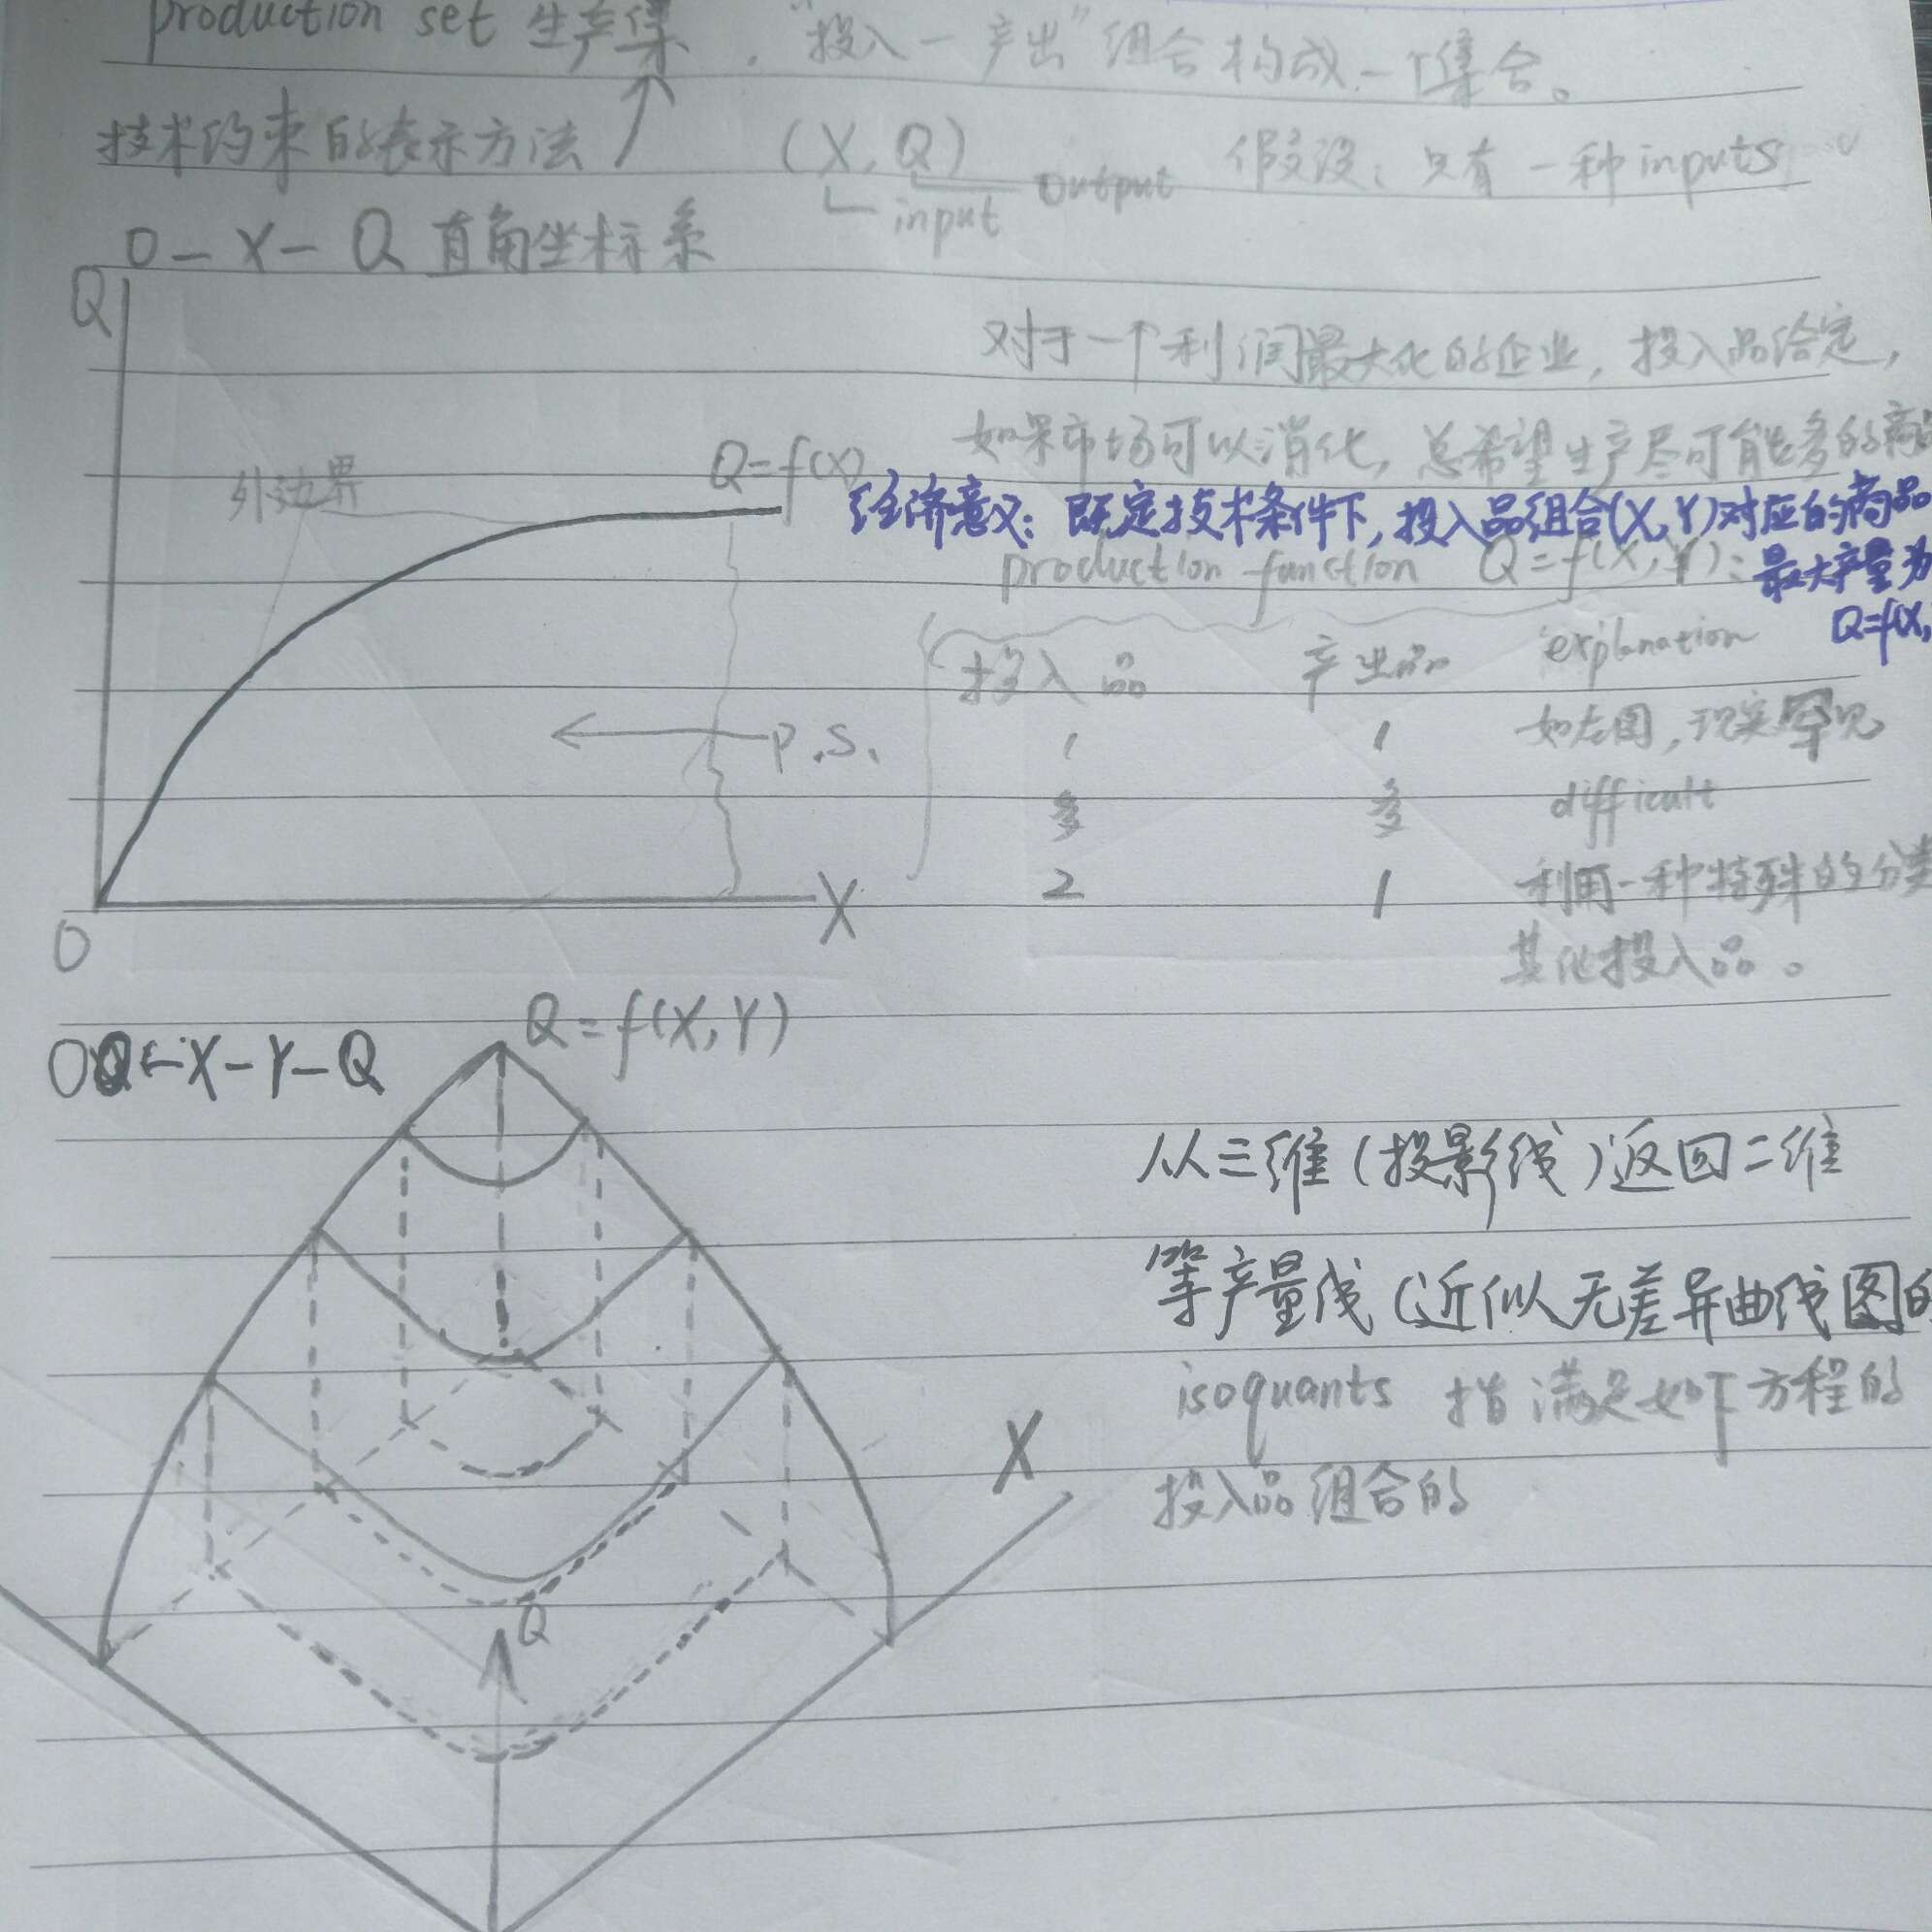 production set 生产集 . "投入一产出"组合构成一个集合。
技术约束的表示方法 (X, Q) 假设:只有一种inputs
input output
O-X-Q 直角坐标系
Q
对于一个利润最大化的企业,投入品给定,
如果市场可以消化,总希望生产尽可能多的商
外边界 Q=f(X)
经济意义:既定技术条件下,投入品组合(X,Y)对应的商品
production function Q=f(X,Y): 最大产量为
Q=f(X,
投入品 产出品 explanation
p.s. 1 1 如左图,现实罕见
多 多 difficult
2 1 利用一种特殊的分类
其他投入品。
O X
Q=f(X,Y)
O-X-Y-Q
从三维(投影线)返回二维
等产量线(近似无差异曲线图的
isoquants 指满足如下方程的
投入品组合的
X
Q